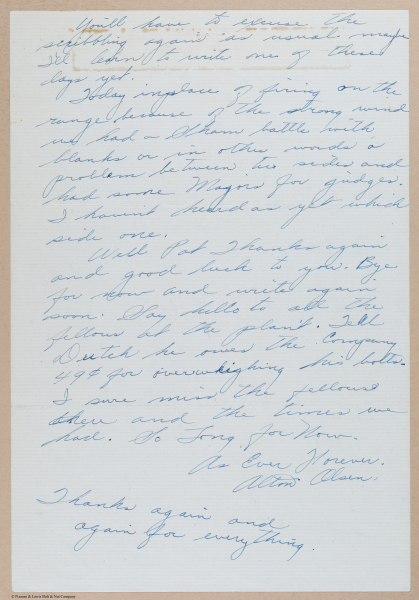 You'll have to excuse the
scribbling again as usual maybe
I'll learn to write one of these
days yet.
Today inplace of firing on the
range because of the strong wind
we had a Sham battle with
blanks or in other words a
problem between two sides and
had some Majors for judges.
I havn't heard as yet which
side one.
Well Pat Thanks again
and good luck to you. Bye
for now and write again
soon. Say hello to all the
fellows at the plant. Tell
Dutch he owes the Company
49¢ for overweighing his bolts.
I sure miss the fellows
there and the times we
had. So Long for Now.
As Ever Forever.
Alton Olsen.
Thanks again and
again for everything.
© Pheoll &amp; Lewis Bolt &amp; Nut Company